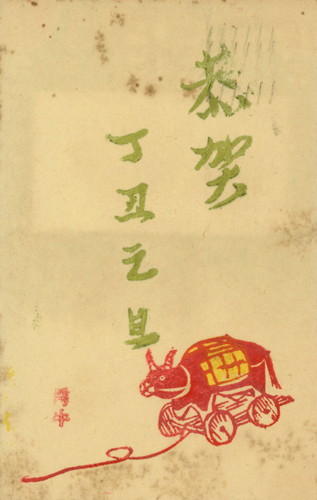 恭賀
丁丑元旦